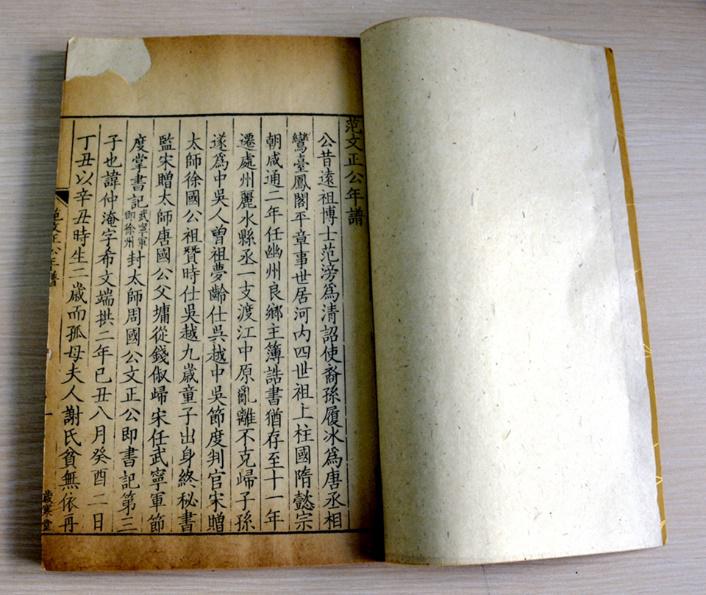 范文正公年譜
公昔遠祖博士范滂爲清詔使裔孫履冰爲唐丞相
鸞臺鳳閣平章事世居河内四世祖上柱國隋懿宗
朝咸通二年任幽州良鄉主簿誥書猶存至十一年
遷處州麗水縣丞一支渡江中原亂離不克歸子孫
遂爲中吳人曾祖夢齡仕吳越中吳節度判官宋贈
太師徐國公祖贊時仕吳越九歲童子出身終秘書
監宋贈太師唐國公父墉從錢俶歸宋任武寧軍節
度掌書記武寧軍即徐州封太師周國公文正公即書記第三
子也諱仲淹字希文端拱二年己丑八月癸酉二日
丁丑以辛丑時生二歲而孤母夫人謝氏貧無依再
范文正公年譜
一
歲寒堂